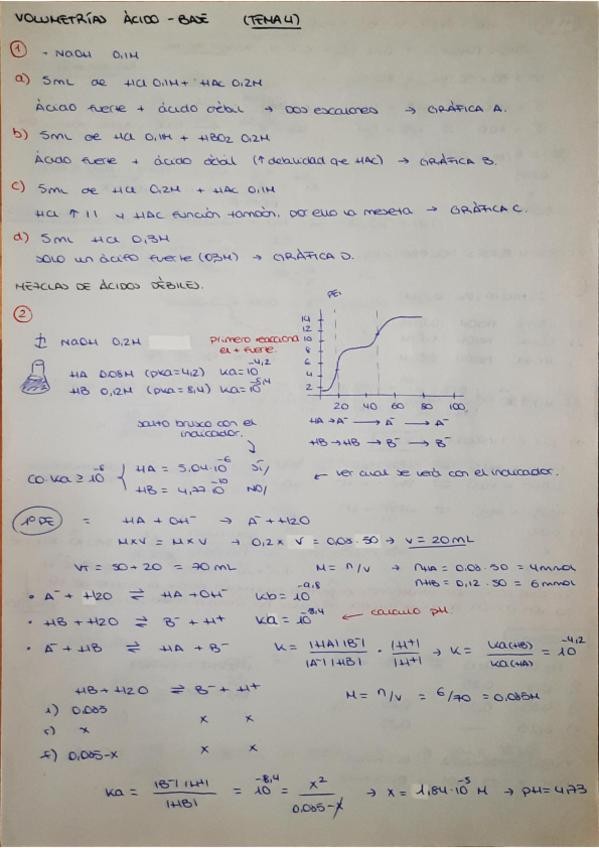 VOLUMETRÍAS ÁCIDO - BASE (TEMA 4)
① - NaOH 0,1M
a) 5mL de HCl 0,1M + HAC 0,2M
Ácido fuerte + ácido débil → DOS escalones → GRÁFICA A.
b) 5mL de HCl 0,1M + HBO2 0,2M
Ácido fuerte + ácido débil (↑ debilidad que HAC) → GRÁFICA B.
c) 5mL de HCl 0,2M + HAC 0,1M
HCl ↑ [] y HAC función tampón, por ello la meseta → GRÁFICA C.
d) 5mL HCl 0,3M
Solo un ácido fuerte (0,3M) → GRÁFICA D.
MEZCLAS DE ÁCIDOS DÉBILES.
②
NaOH 0,2M
primero reacciona el + fuerte.
HA 0,08M (pKa=4,2) Ka=10^-4,2
HB 0,12M (pKa=8,4) Ka=10^-8,4
14
12
10
8
6
4
2
20 40 60 80 100
HA→A⁻ → A⁻ → A⁻
HB→HB → B⁻ → B⁻
salto brusco con el indicador.
Co·Ka ≥ 10^-8
HA = 5,04·10^-6 SÍ/
HB = 4,77·10^-10 NO/
← ver cual se verá con el indicador.
1º PE = HA + OH⁻ → A⁻ + H2O
M×V = M×V → 0,2 × V = 0,08·50 → V = 20mL
VT = 50 + 20 = 70mL M = n/V → nHA = 0,08·50 = 4mmol
nHB = 0,12·50 = 6mmol
• A⁻ + H2O ⇌ HA + OH⁻ Kb = 10^-9,8
• HB + H2O ⇌ B⁻ + H⁺ Ka = 10^-8,4 ← calculo pH.
• A⁻ + HB ⇌ HA + B⁻ K = |HA||B⁻| / |A⁻||HB| · |H⁺| / |H⁺| → K = Ka(HB) / Ka(HA) = 10^-4,2
HB + H2O ⇌ B⁻ + H⁺ M = n/V = 6/70 = 0,085M
i) 0,085
r) x x x
f) 0,085-x x x
Ka = |B⁻||H⁺| / |HB| = 10^-8,4 = x² / 0,085-x → x = 1,84·10^-5 M → pH = 4,73